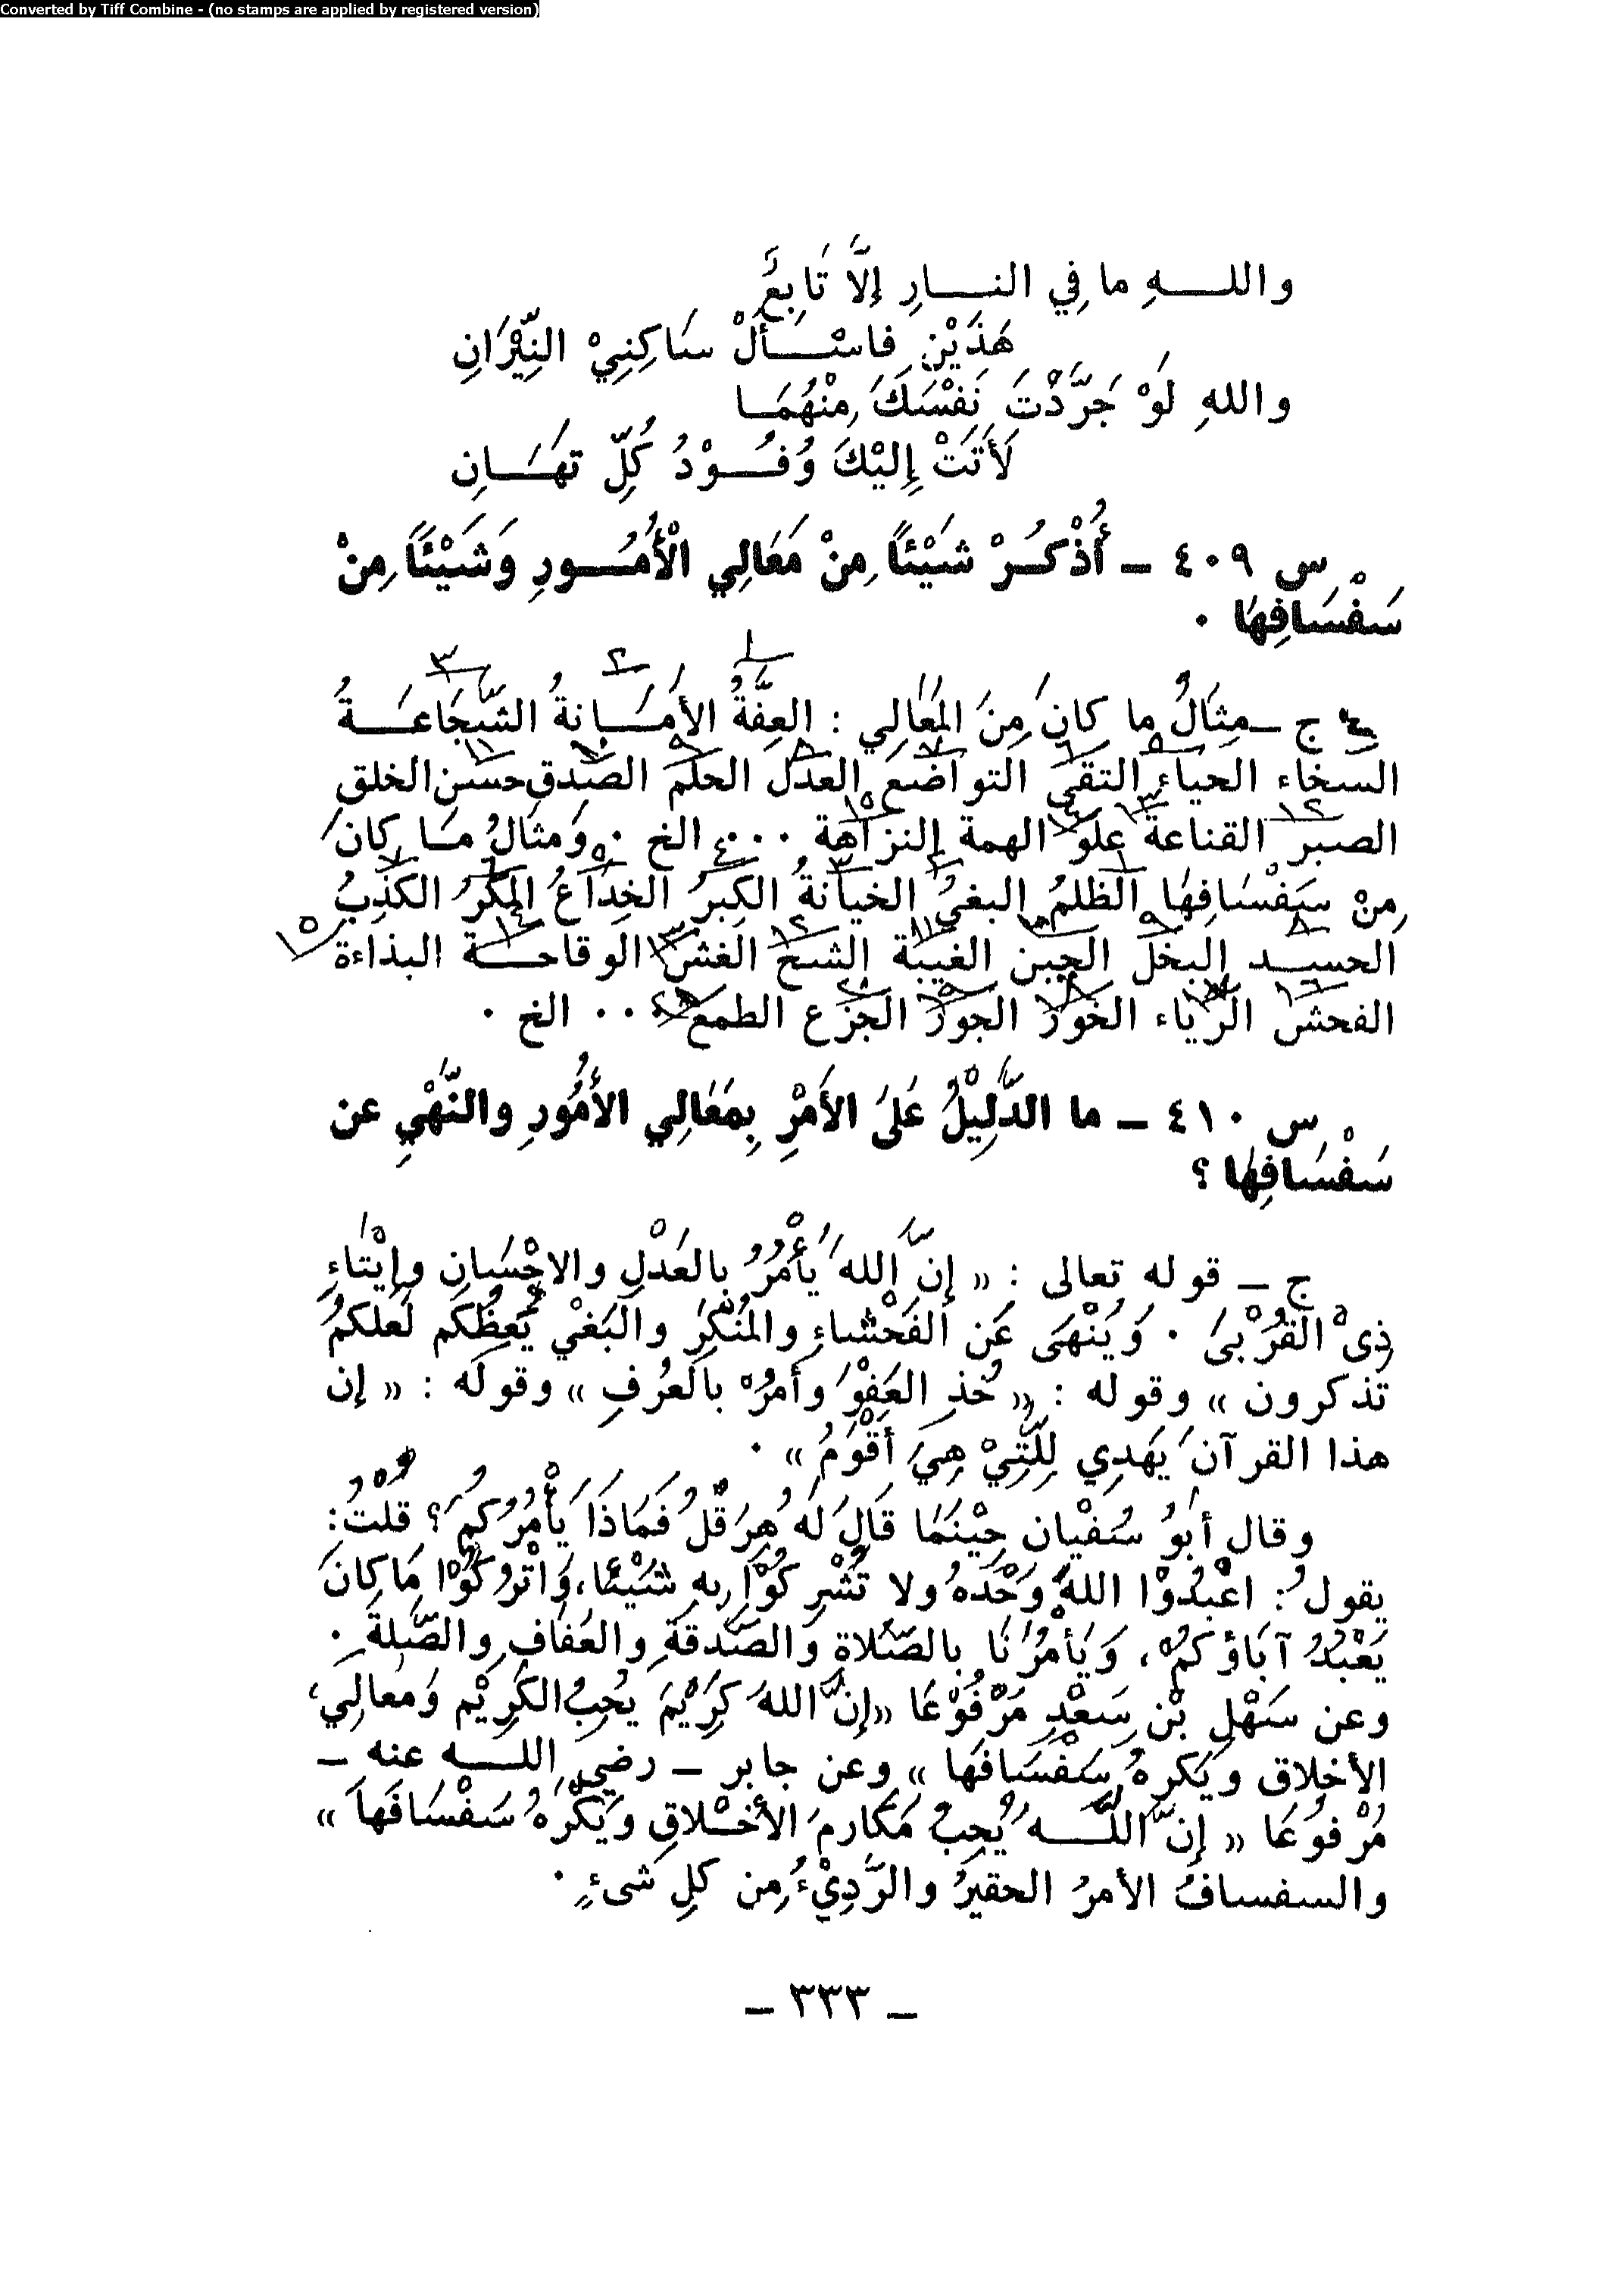 Converted by Tiff Combine - (no stamps are applied by registered version)
واللـــهِ ما فِي النـــارِ إلَّا تَابِعٌ
هَذَيْنِ فاسْــأَلْ سَاكِنِيْ النِّيْرَانِ
واللهِ لَوْ جَرَّدْتَ نَفْسَكَ مِنْهُمَـا
لَأَتَتْ إِلَيْكَ وُفُــوْدُ كُلِّ تهَـانِ
س ٤٠٩ ــ أُذْكُـرْ شَيْئاً مِنْ مَعَالِي الْأُمُــورِ وَشَيْئاً مِنْ
سَفْسَافِهَا ٠
ج ــ مِثَالُ ما كانَ مِنَ المَعَالِي : العِفَّةُ الأَمَـانةُ الشَّجَاعَـةُ
السخاء الحياء التقى التواضع العدل الحلم الصدق حسن الخلق
الصبر القناعة علو الهمة النزاهة ٠٠٠ الخ ٠ وَمثالُ مَـا كانَ
مِنْ سَفْسَافِهَا الظلمُ البغيُ الخيانةُ الكِبرُ الخِدَاعُ المكرُ الكذِبُ
الحسـد البخل الجبن الغيبة الشح الغش الوقاحـة البذاءة
الفحش الرياء الخور الجور الجزع الطمع ٠٠٠ الخ ٠
س ٤١٠ ــ ما الدَّلِيْلُ عَلَى الأَمْرِ بِمَعَالِي الأُمُورِ والنَّهْيِ عن
سَفْسَافِهَا ؟
ج ــ قوله تعالى : « إنَّ اللهَ يأمُرُ بالعَدْلِ والاحْسَانِ وإيْتَاءِ
ذِى القُرْبىَ ٠ وَيَنْهَى عَن الفَحْشاءِ والمُنْكَرِ والبَغْيِ يَعِظُكم لَعلكمُ
تذكرون » وقوله : « خُذِ العَفْوَ وأمُرْ بالعُرْفِ » وقوله : « إن
هذا القرآنَ يَهَدِي لِلَّتِيْ هِيَ أَقْوَمُ » ٠
وقال أبوُ سُفْيان حِيْنَمَا قَالَ لَهُ هِرَقْلُ فَمَاذَا يَأْمُرُكُمْ ؟ قُلْتُ :
يقولُ : اعْبُدُوْا اللهَ وَحْدَهُ ولا تُشْرِكُوْا بِهِ شَيْئًا ، وَاتْرُكُوْا مَا كانَ
يَعْبُدُ آبَاؤُكمْ ، وَيَأمُرُنَا بالصَّلاةِ وَالصَّدقَةِ والعَفافِ والصِّلةِ ٠
وعن سَهْلِ بْنِ سَعْدٍ مَرْفُوْعًا « إنَّ اللهَ كَرِيْمَ يُحِبُ الكَرِيْم وَمَعالِيَ
الأخلاق ويَكرهُ سَفْسَافَهَا » وعن جابر ــ رضي اللـــه عنه ــ
مُرْفوُعًا « إنَّ اللَّـــهَ يُحِبُ مَكارمَ الأَخْـلاقِ وَيَكْرَهُ سَفْسَافَهاَ »
والسفسافُ الأمرُ الحقيرُ والرَّدِيْءُ مِن كلِ شىءٍ ٠
ــ ٣٣٣ ــ